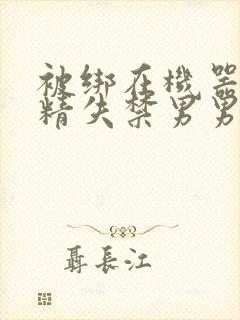 被绑在機器
精失禁男男
聶長江